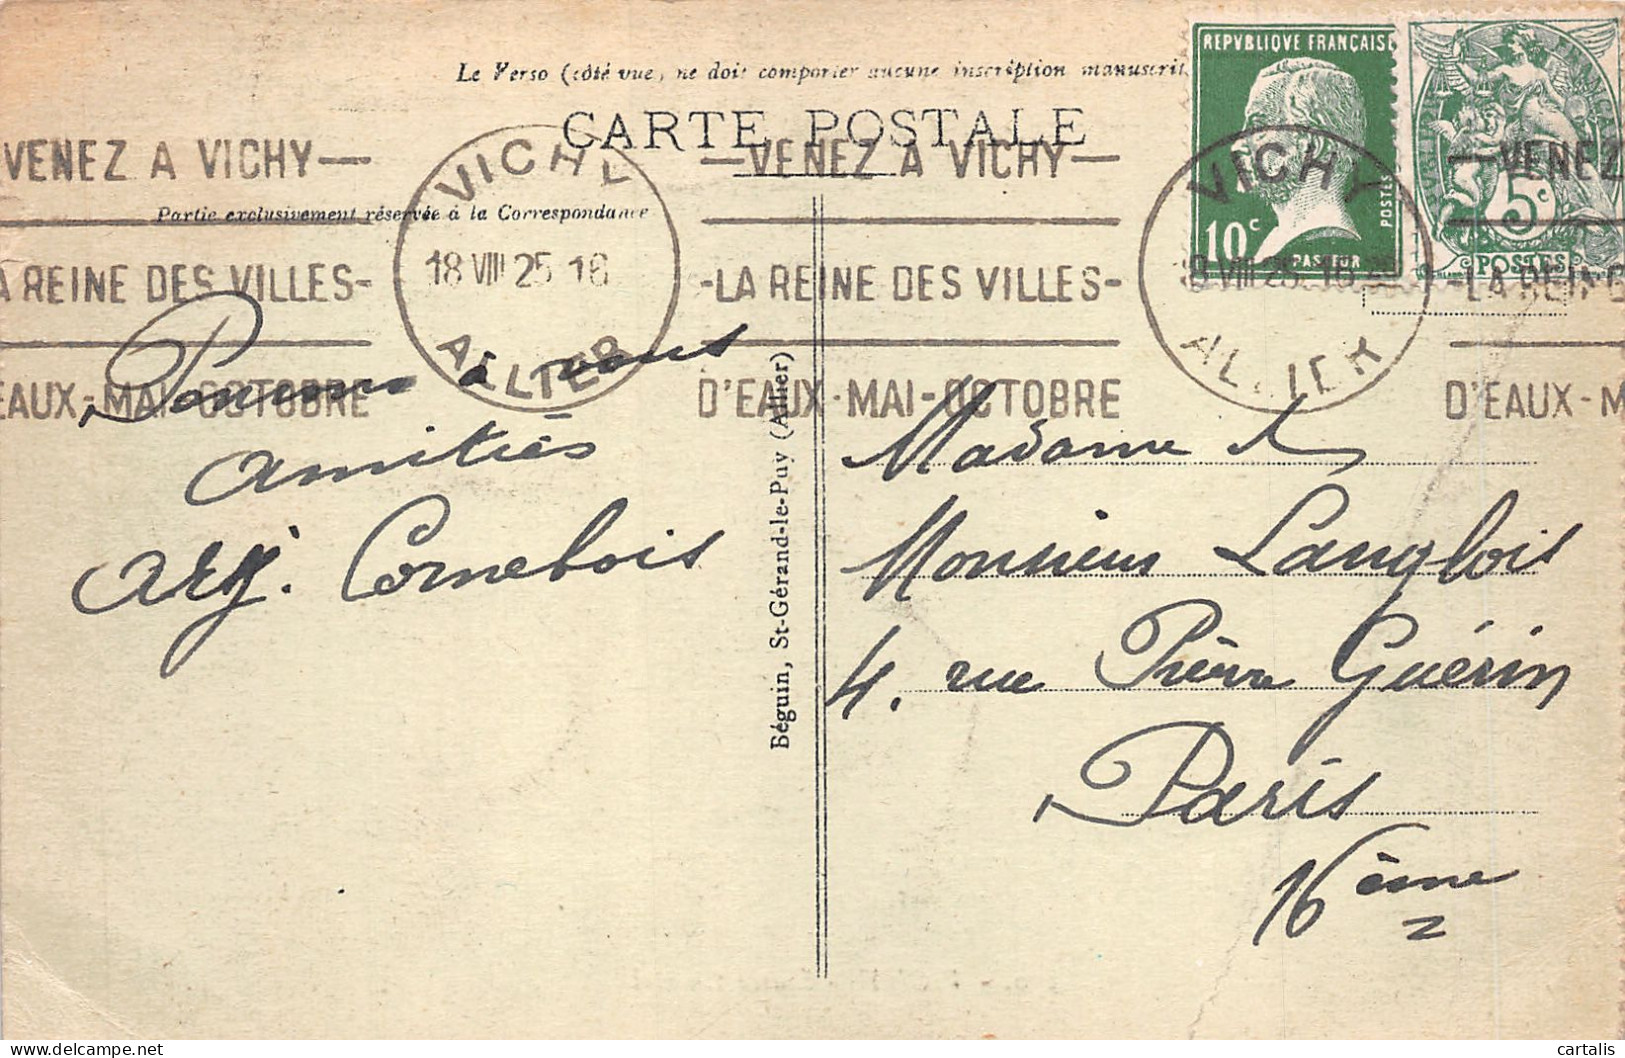 REPVBLIQVE FRANÇAISE
Le Verso (côté vue) ne doit comporter aucune inscription manuscrit
CARTE POSTALE
VENEZ A VICHY
VICHY
VENEZ A VICHY
VICHY
VENEZ
POSTES
10c
5c
Partie exclusivement réservée à la Correspondance
PASTEUR
POSTES
LA REINE DES VILLES
18 VIII 25 16
LA REINE DES VILLES
VIII 25 16
LA REINE
ALLIER
ALLIER
EAUX-MAI-OCTOBRE
D'EAUX-MAI-OCTOBRE
D'EAUX-M
à vous
amitiés
Cornebois
Béguin, St-Gérand-le-Puy (Allier)
Madame &
Monsieur Langlois
4. rue Pierre Guérin
Paris
16ème
cartalis